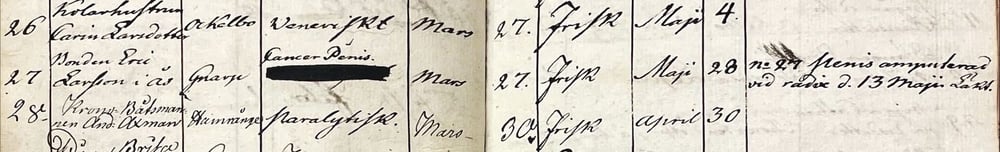 Kolarhustrun
26 Carin Larsdotter Ockelbo Veneriskt Mars 27. Frisk Maji 4.
Bonden Eric Cancer Penis.
27 Larsson i ås Gnarp Mars 27. Frisk Maji 28 No 27 Penis amputerad
vid radix d. 13 Maji Läkt.
28 Krono Båtsman-
nen And. Axman Hamrånge Paralytisk. Mars 30 Frisk April 30
Brita